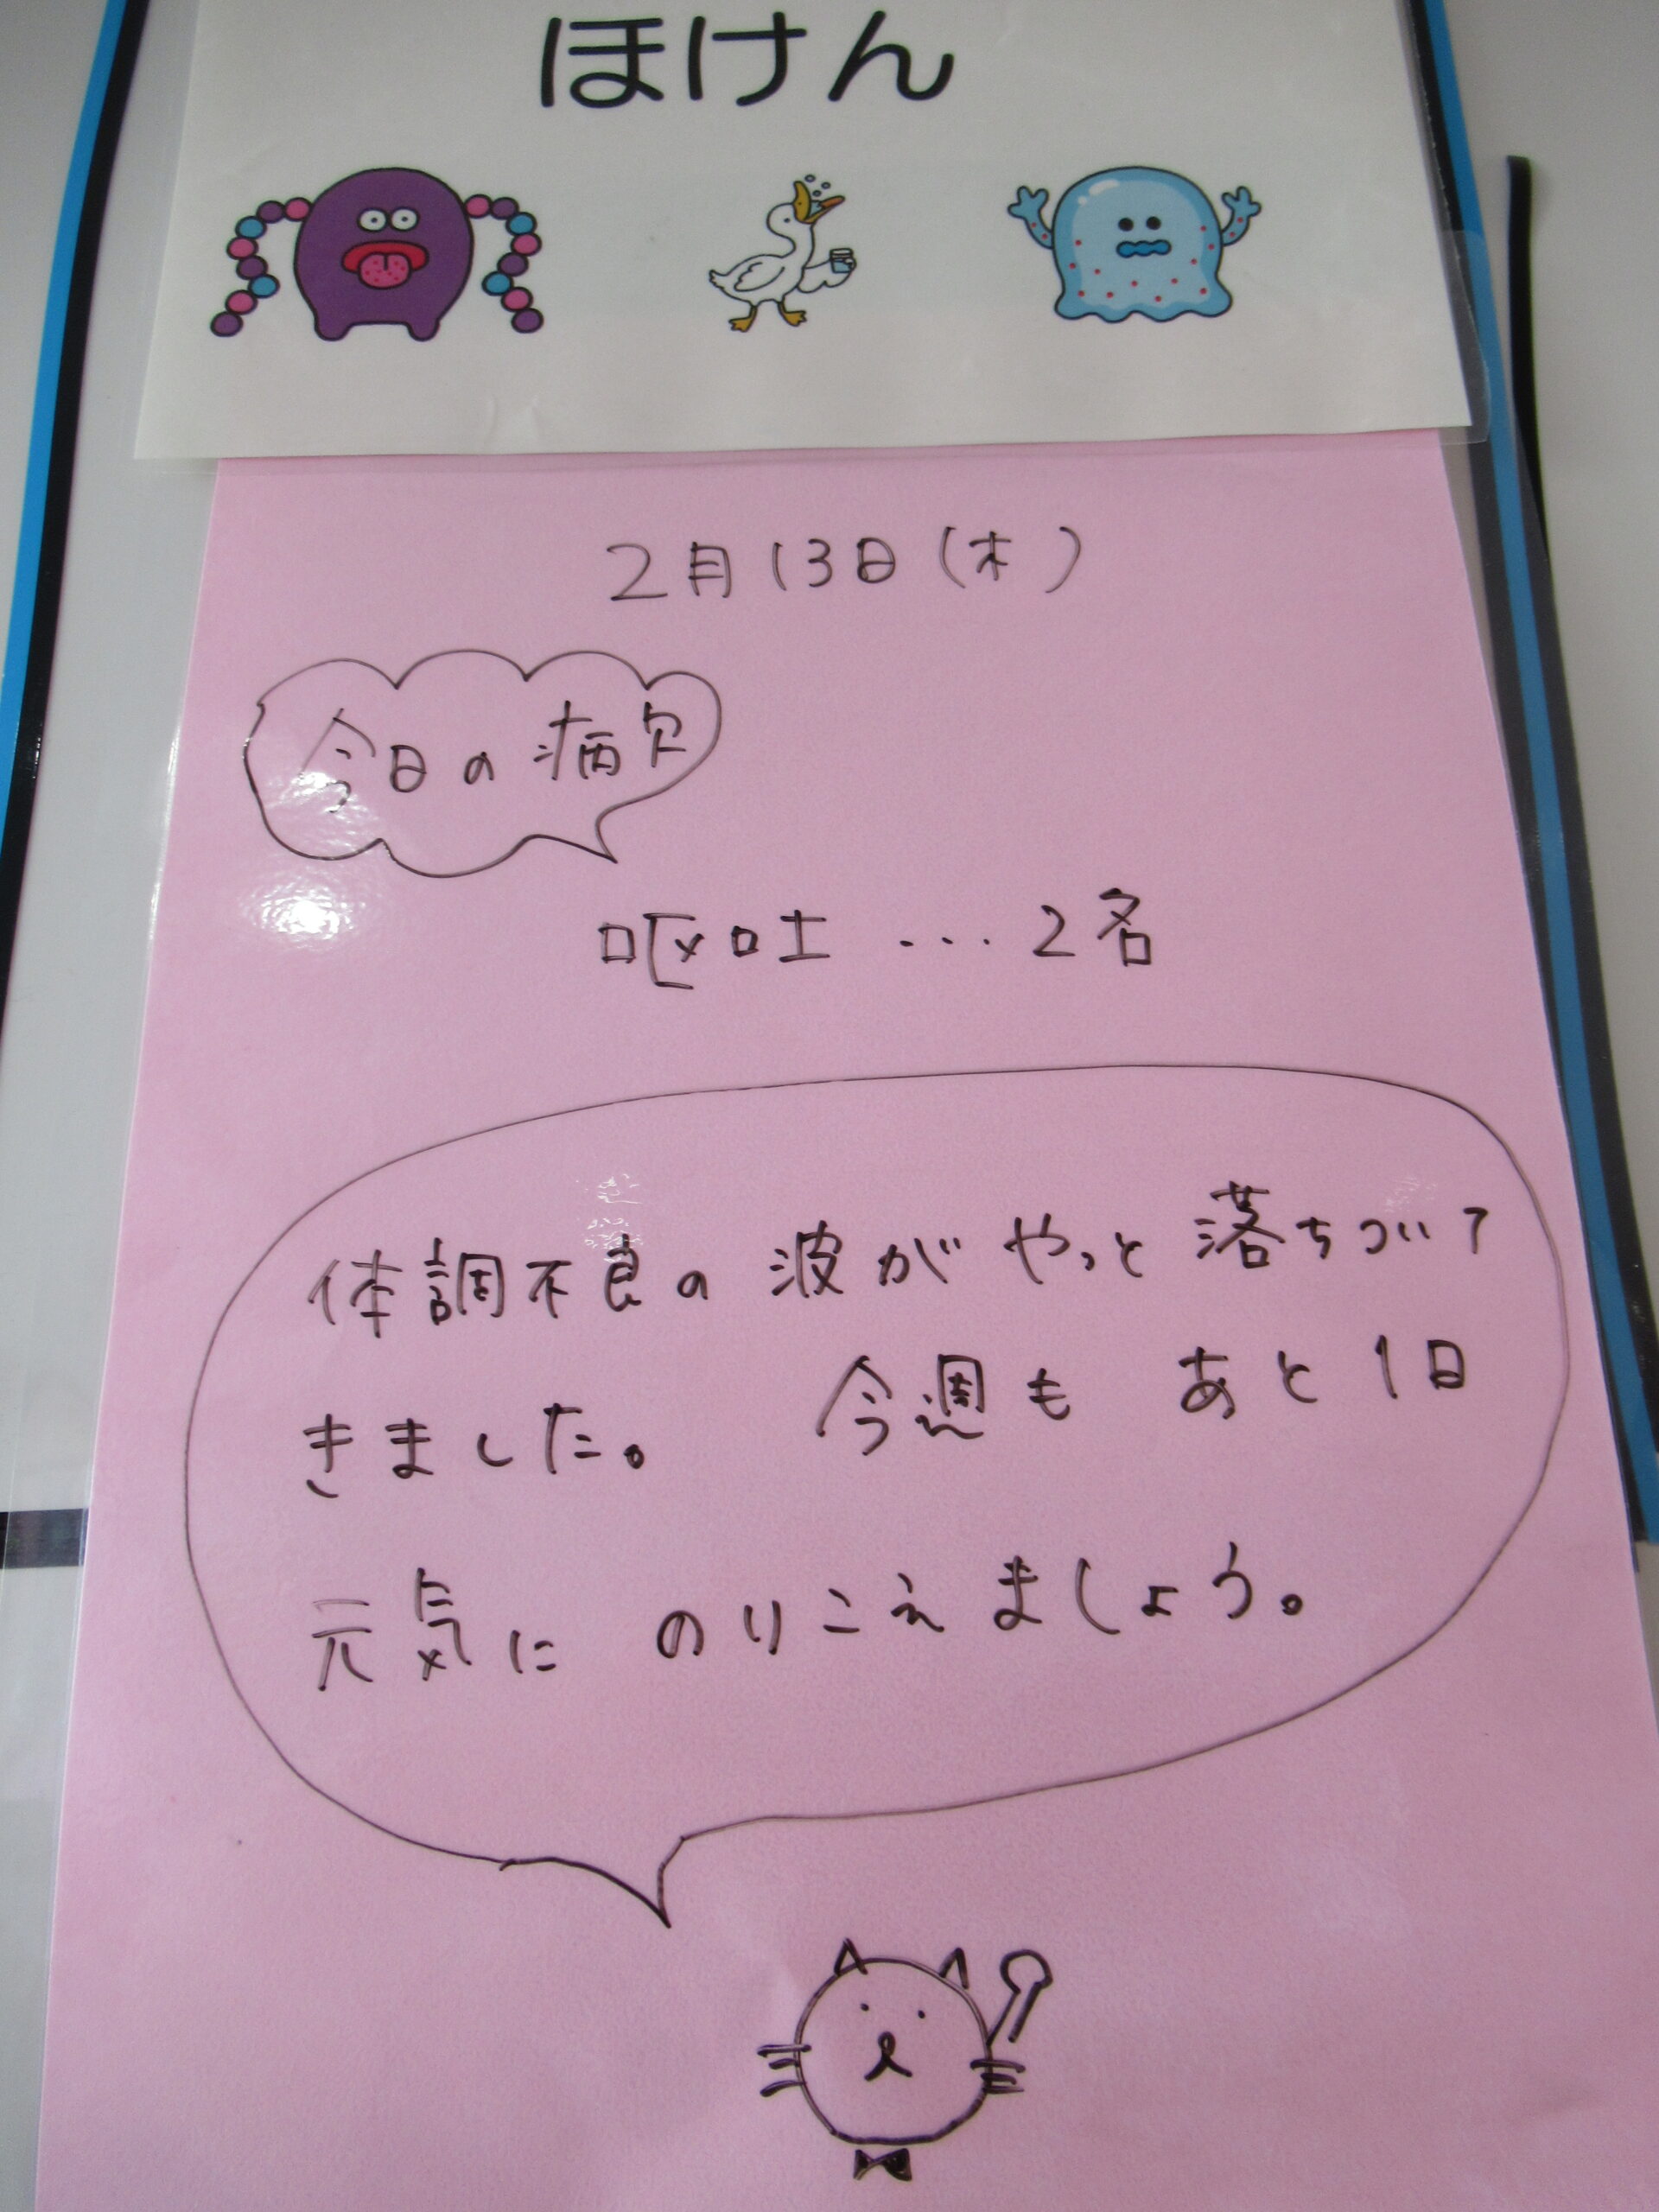 ほけん
2月13日(木)
今日の病欠
呕吐 ... 2名
体調不良の波がやっと落ちついて
きました。 今週も あと1日
元気に のりこえましょう。